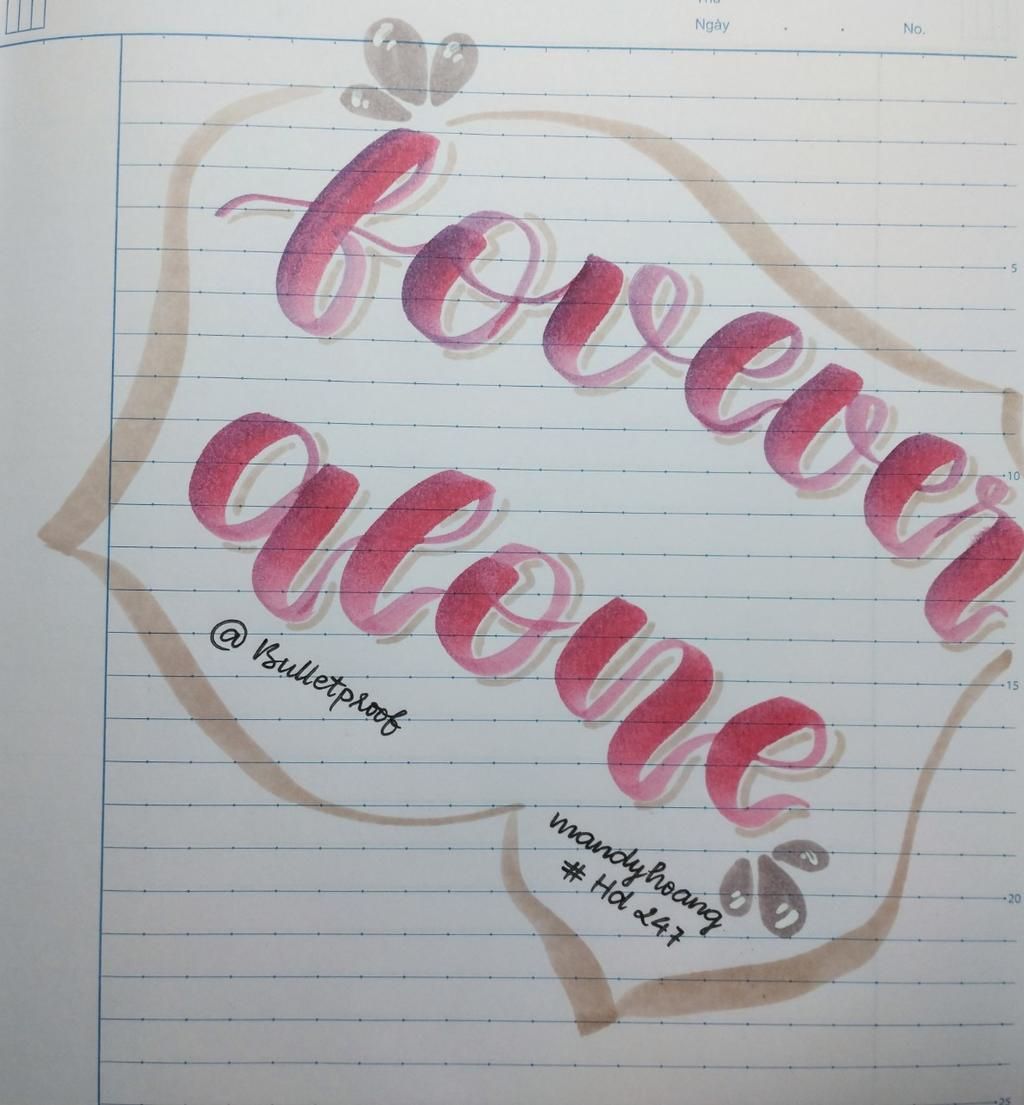 Thứ
Ngày . . No.
forever
5
10
alone
@ Bulletproof
15
mandyhoang
# Hd 247
20
25